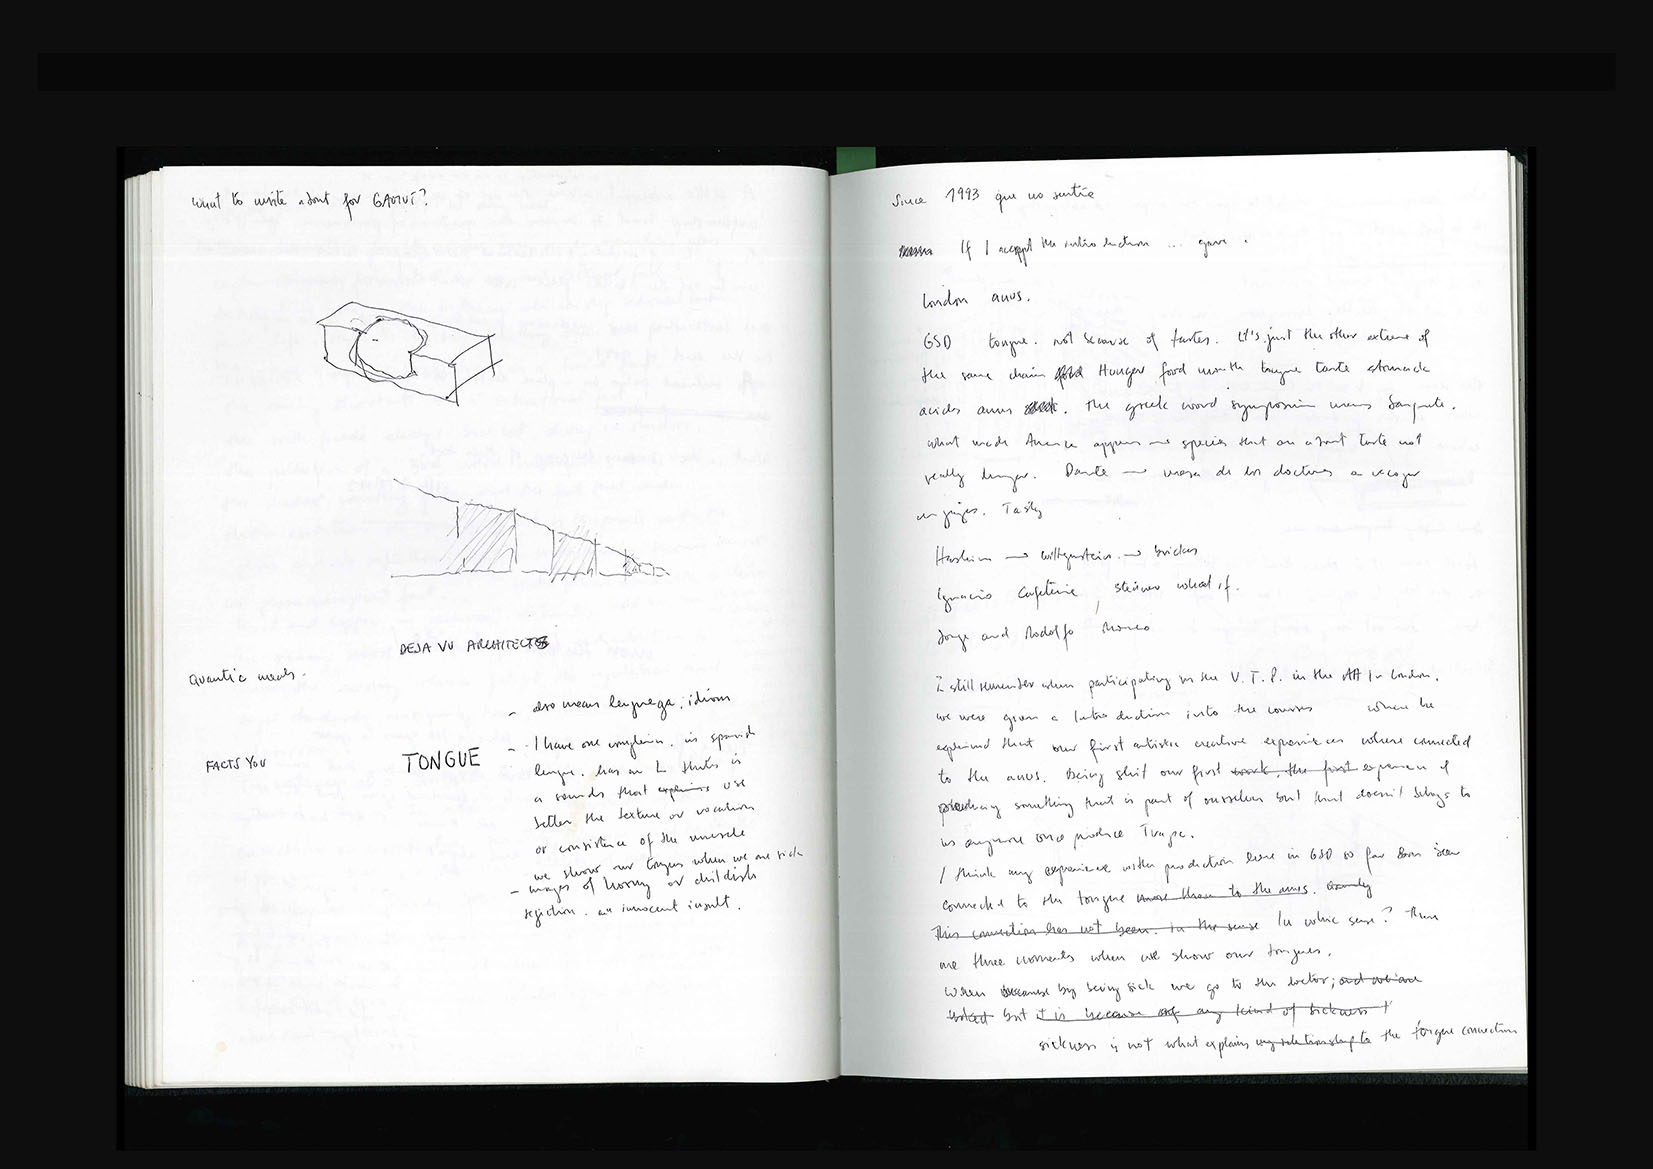 what to write about for GAMUT?
DEJA VU ARCHITECTS
Quantic
FACTS YOU
TONGUE
- also means lenguage, idiom
- I have one complain. in spanish
lengua. has an L that's is
a sounds that use
better the texture or
or consistence of the muscle
we show our tongues when we are sick
- images of horny or childish
rejection. an innocent insult.
Since 1993 que no sentia
If I accept the introduction ... gave
London anus.
GSD tongue. not because of tastes. it's just the other extreme of
the same chain Hunger food mouth tongue taste stomach
acids anus. the greek word symposium means banquete.
what made America appears species that an about taste not
really hunger. Dante → mesa de los doctores a recoger
Tasty
Hashim → wittgenstein → bricks
Ignacio Cafeteria, steiner what if.
Jorge and Rodolfo
I still remember when participating in the V.T.P. in the AA in London.
we were given a introduction into the courses where he
explained that our first artistic creative experiences where connected
to the anus. Being shit our first work, the first experience of
producing something that is part of ourselves but that doesn't belongs to
us anymore once produce
I think my experience with production here in GSD so far been
connected to the tongue more than to the anus.
This connection has not been. in the sense In which sense? There
are three moments when we show our tongues.
When by being sick we go to the doctor; and we are
but it is because of any kind of sickness
sickness is not what explains my relationship to the tongue connection